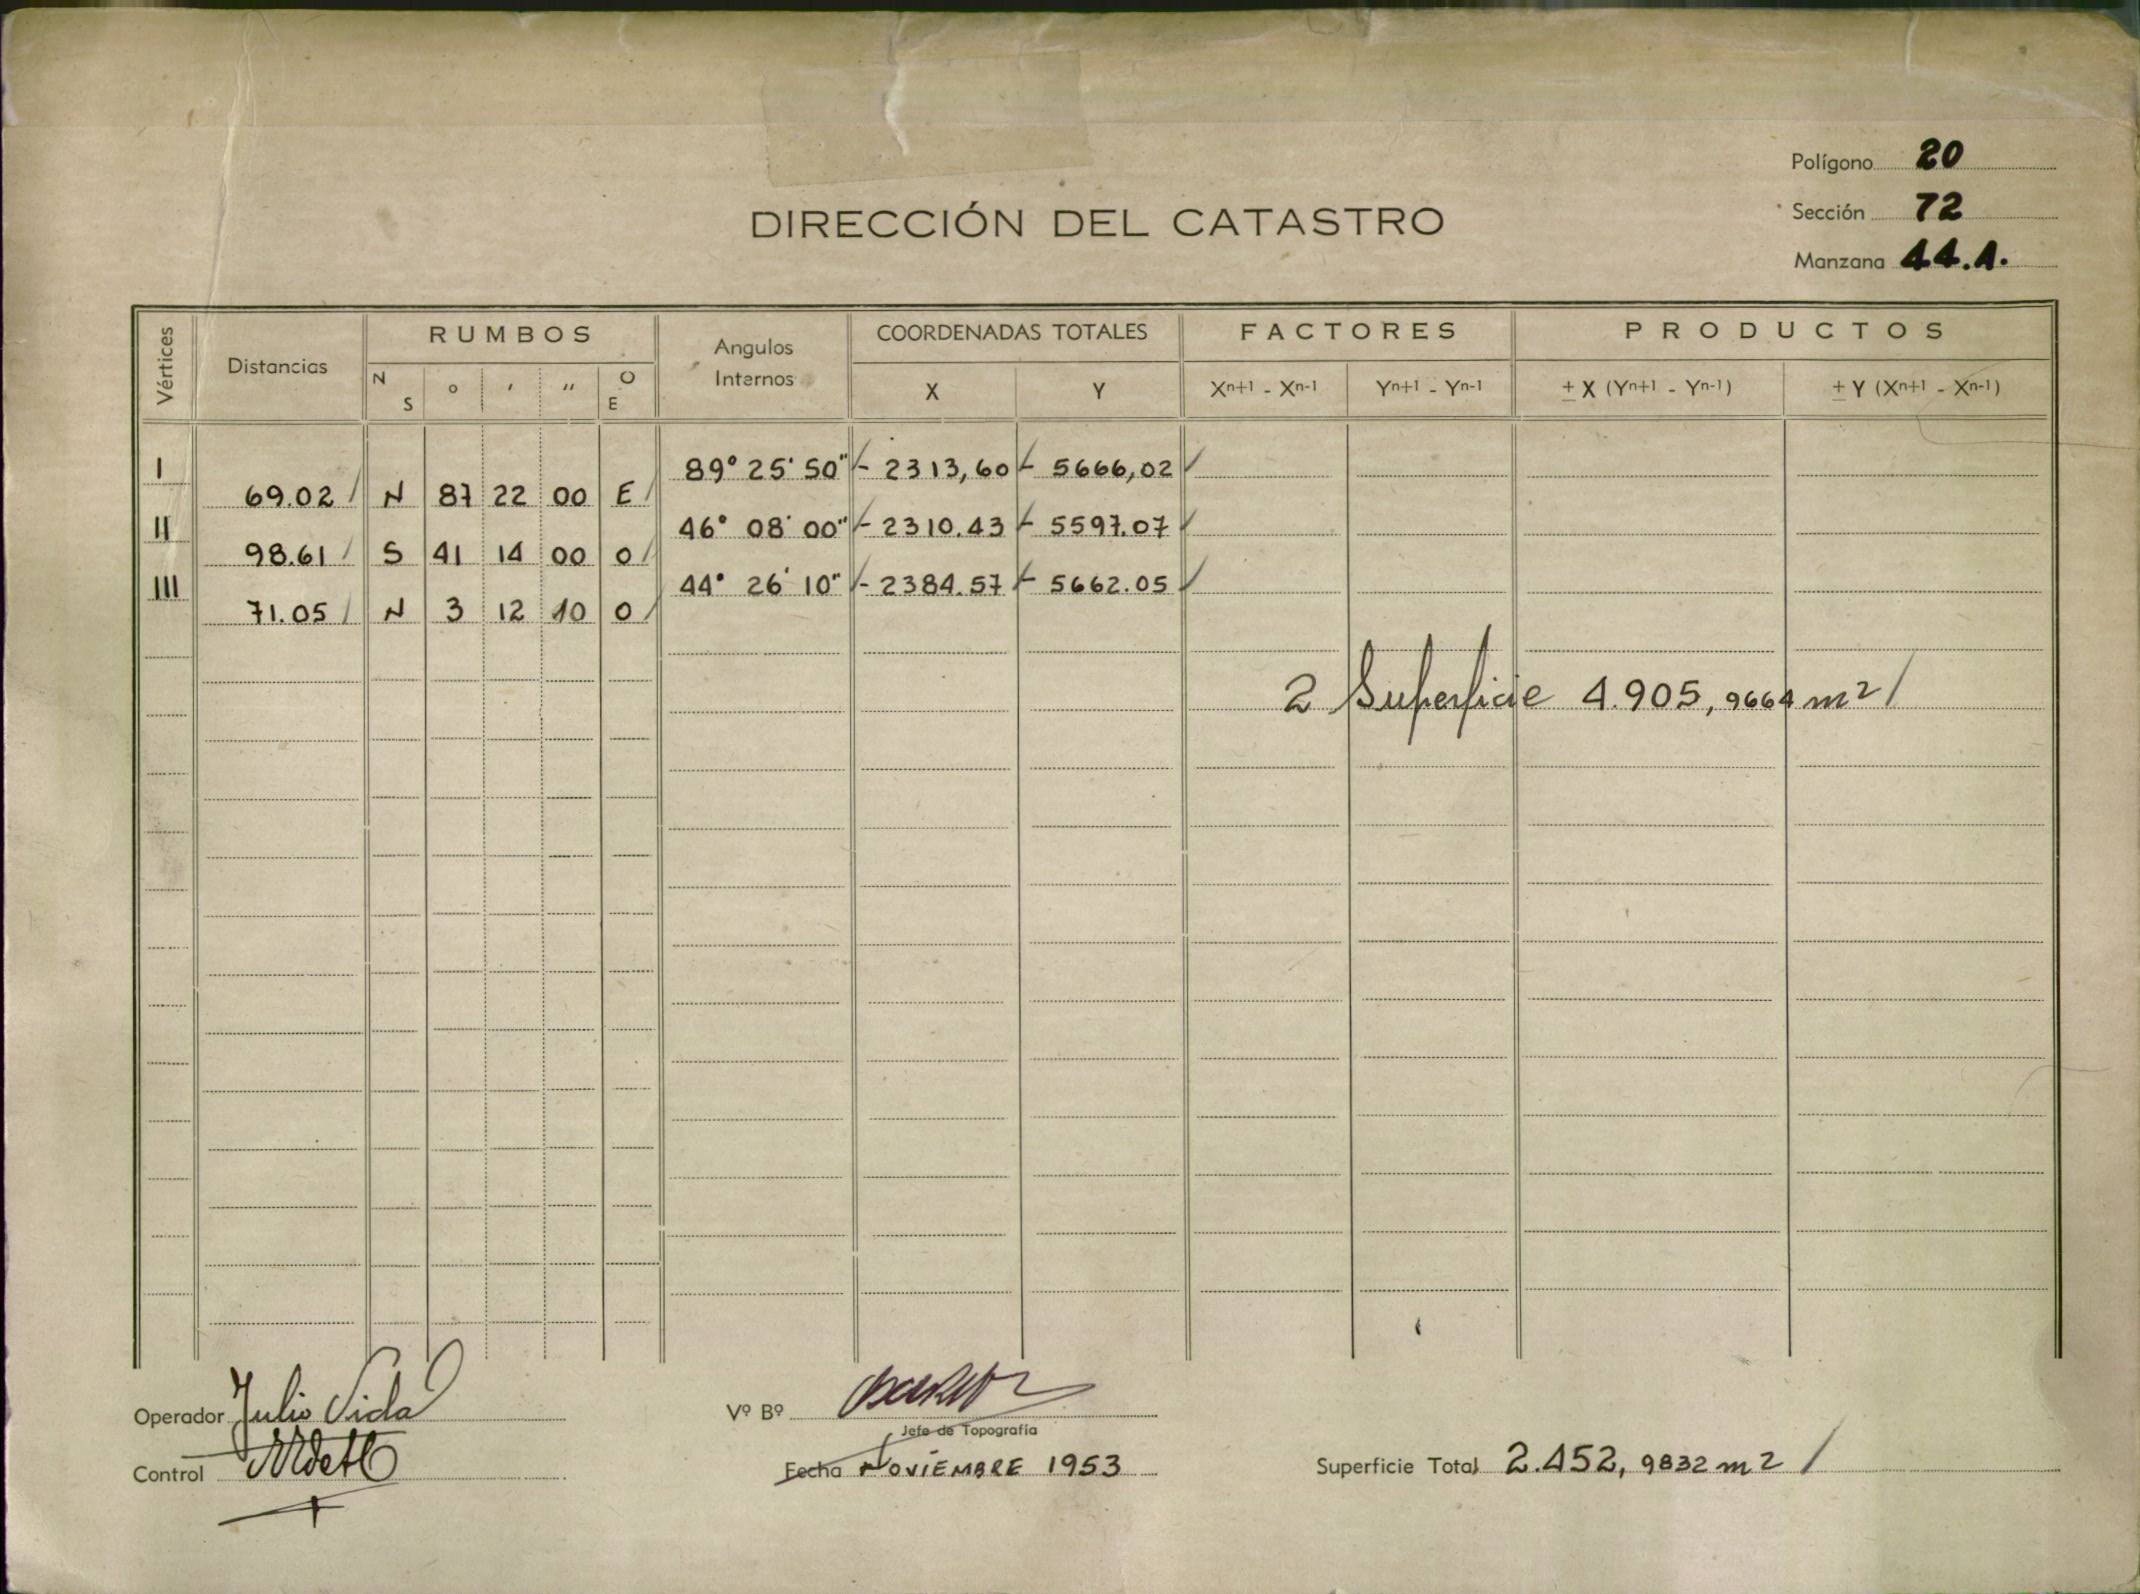 Polígono 20
DIRECCIÓN DEL CATASTRO
Sección 72
Manzana 44.A.
Vértices Distancias RUMBOS Angulos Internos COORDENADAS TOTALES FACTORES PRODUCTOS
N S ° ' " O E X Y Xn+1 - Xn-1 Yn+1 - Yn-1 ± X (Yn+1 - Yn-1) ± Y (Xn+1 - Xn-1)
I 89° 25' 50" - 2313,60 - 5666,02
69.02 N 87 22 00 E
II 46° 08' 00" - 2310.43 - 5597.07
98.61 S 41 14 00 O
III 44° 26' 10" - 2384.57 - 5662.05
71.05 N 3 12 10 O
2 Superficie 4.905,9664 m2
Operador Julio Vidal
Vº Bº
Jefe de Topografía
Control
Fecha Noviembre 1953
Superficie Total 2.452,9832 m2